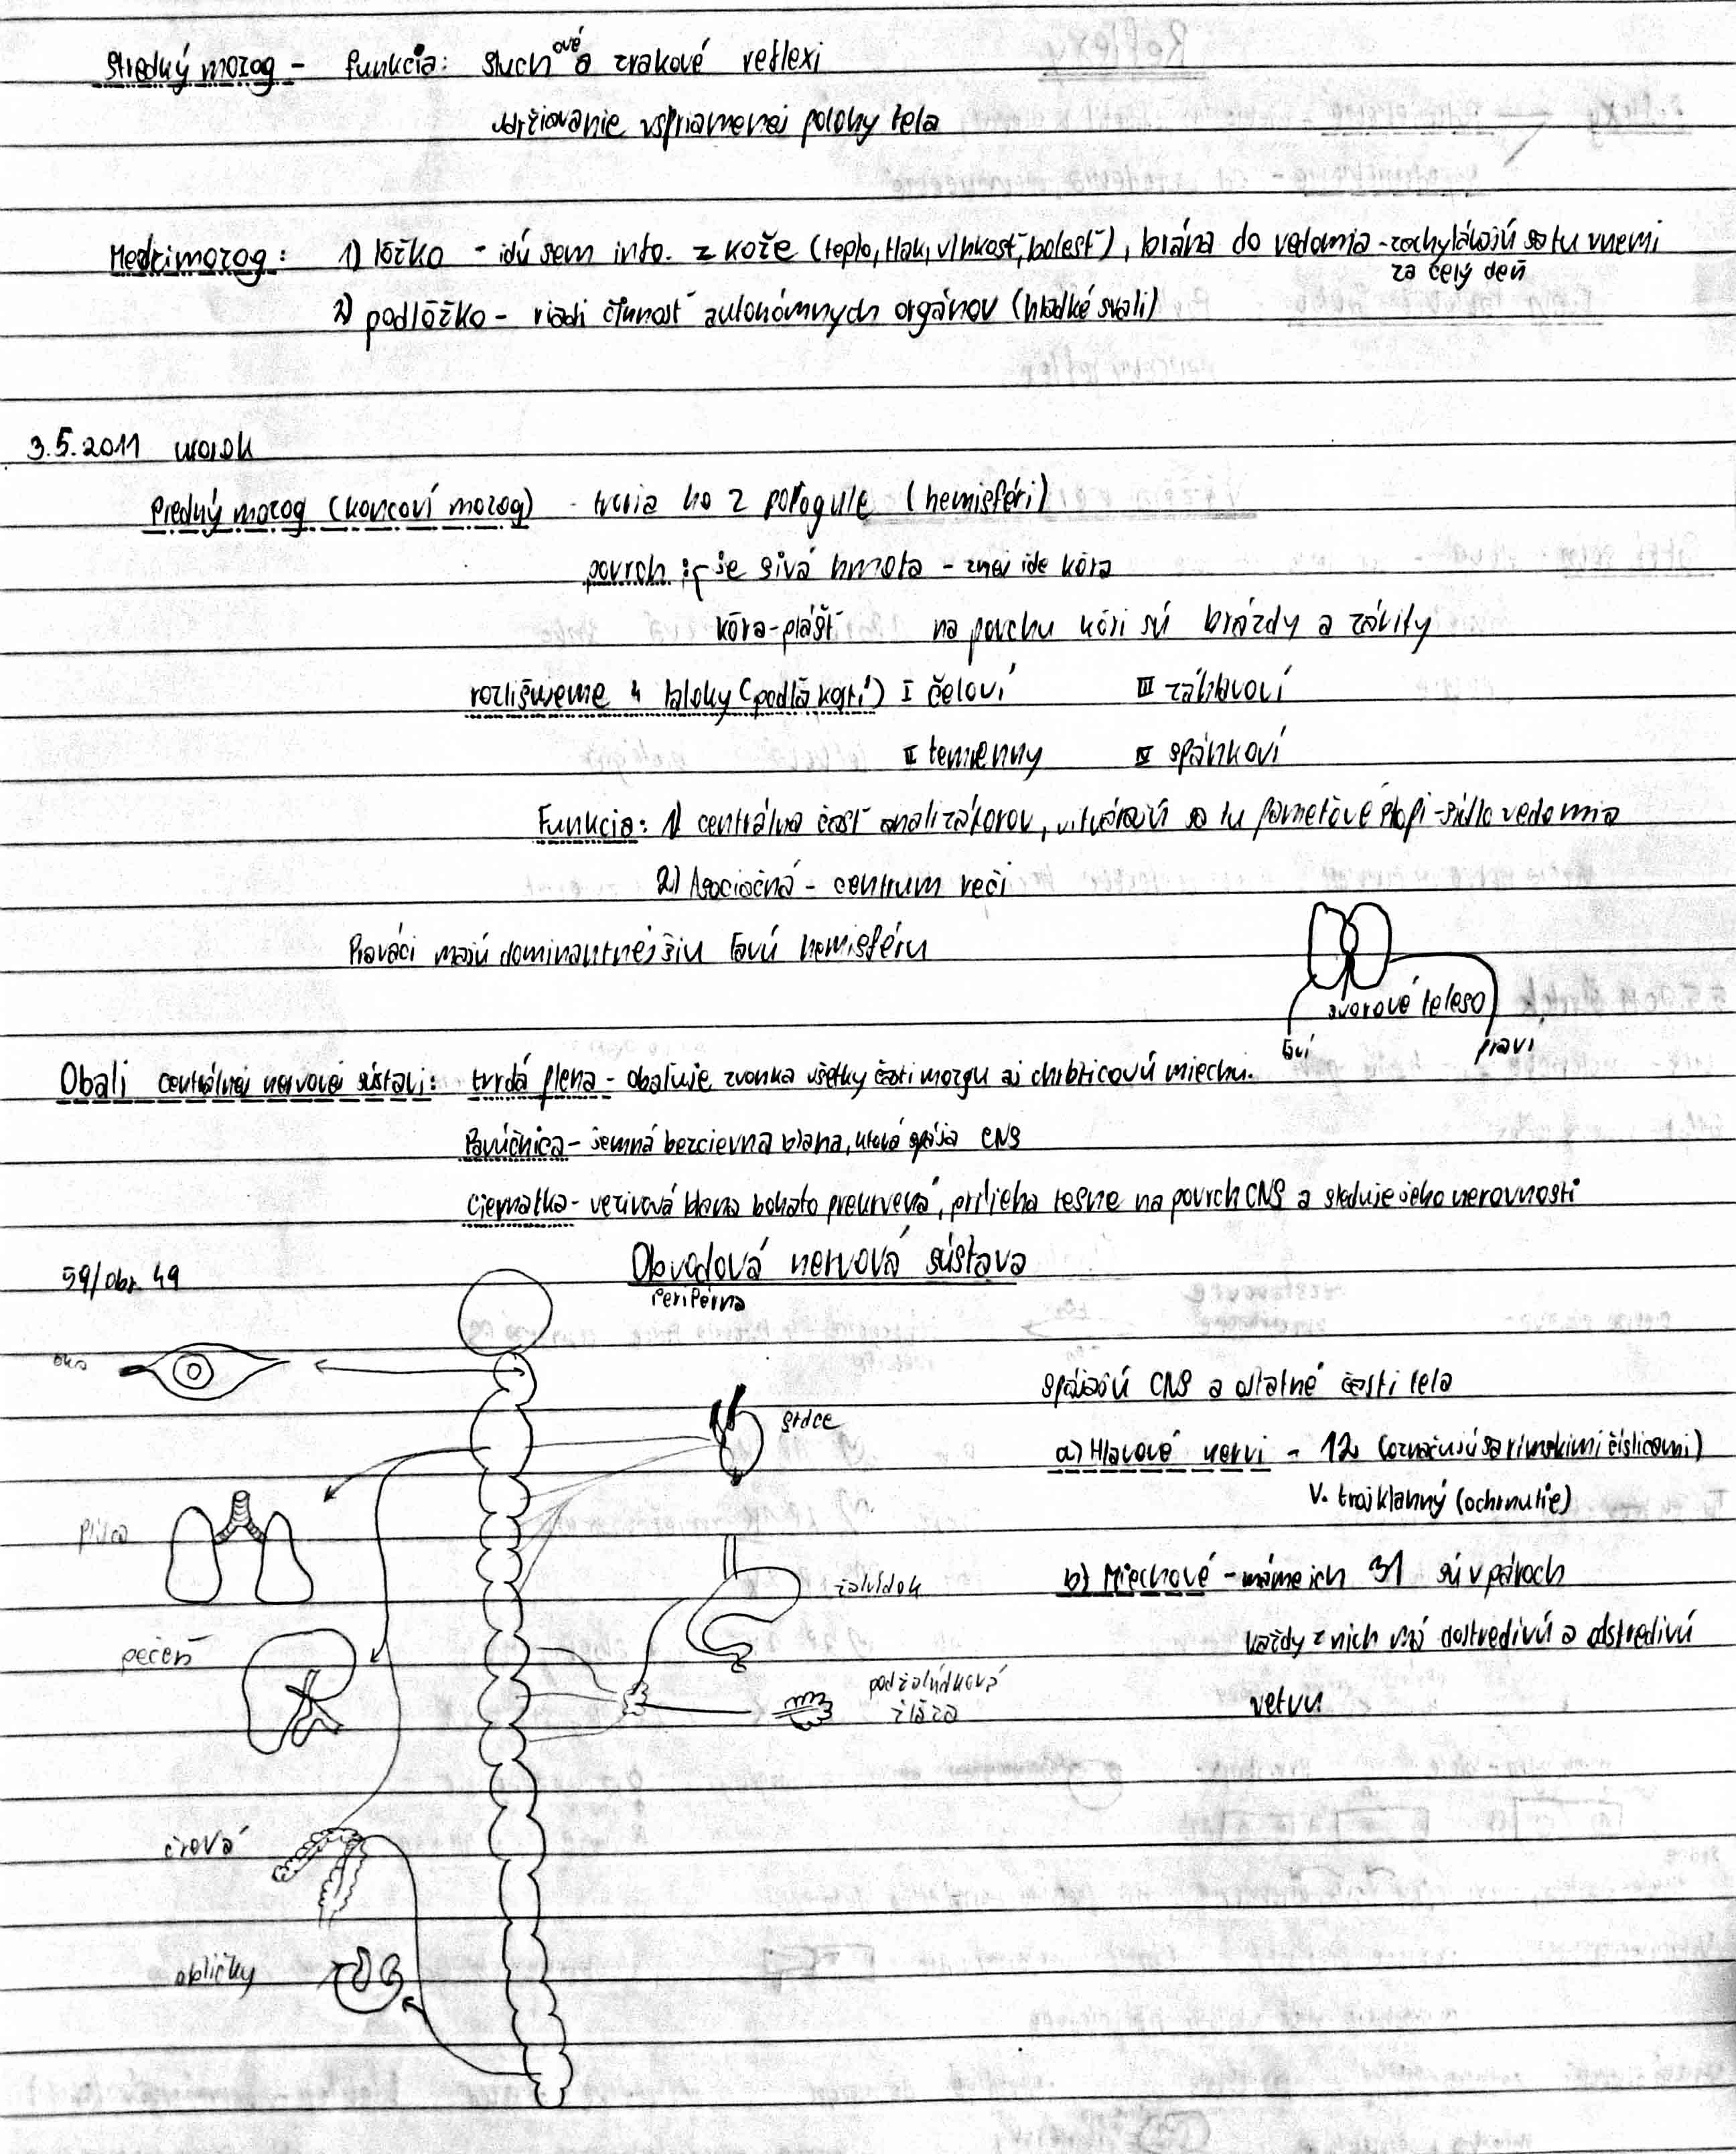 Stredný mozog - funkcia: sluchové a zrakové reflexi
udržiovanie vspriamenej polohy tela
Medzimozog: 1) lôžko - idú sem info. z kože (teplo, tlak, vlhkosť, bolesť), brána do vedomia - zachytávajú sa tu vnemi
za celý deň
2) podlôžko - riadi činnosť autonómnych orgánov (hladké svali)
3.5.2011 utorok
Predný mozog (koncoví mozog) - tvoria ho 2 pologule (hemisféri)
povrch : je sivá hmota - znej ide kôra
kôra - plášť na povchu kôri sú brázdy a záhity
rozlišujeme 4 laloky (podľa kostí) I čeloví III záhlavoví
II temenny IV spánkoví
Funkcia: 1) centrálna časť analizátorov, vitvárajú sa tu pameťové stopi - sídlo vedomia
2) Asociačná - centrum reči
Praváci majú dominantnejšiu ľavú hemisféru
svorové teleso
ľaví praví
Obali centrálnej nervovej sústavi: tvrdá plena - obaľuje zvonka všetky časti mozgu aj chrbticovú miechu.
Pavúčnica - jemná bezcievna blana, ktorá spája CNS
Cievnatka - vezivová blana bohato prekrvená, prilieha tesne na povrch CNS a sleduje jeho nerovnosti
Obvodová nervová sústava
59/obr. 49
Periférna
oko
spájajú CNS a ostatné časti tela
srdce
a) Hlavové nervi - 12 (označujú sa rímskimi číslicami)
V. trojklanný (ochrnutie)
pľúca
žalúdok
b) Miechové - máme ich 31 sú v pároch
každy z nich má dostredivú a odstredivú
pečeň
podžalúdková
žláza
vetvu.
črevá
obličky